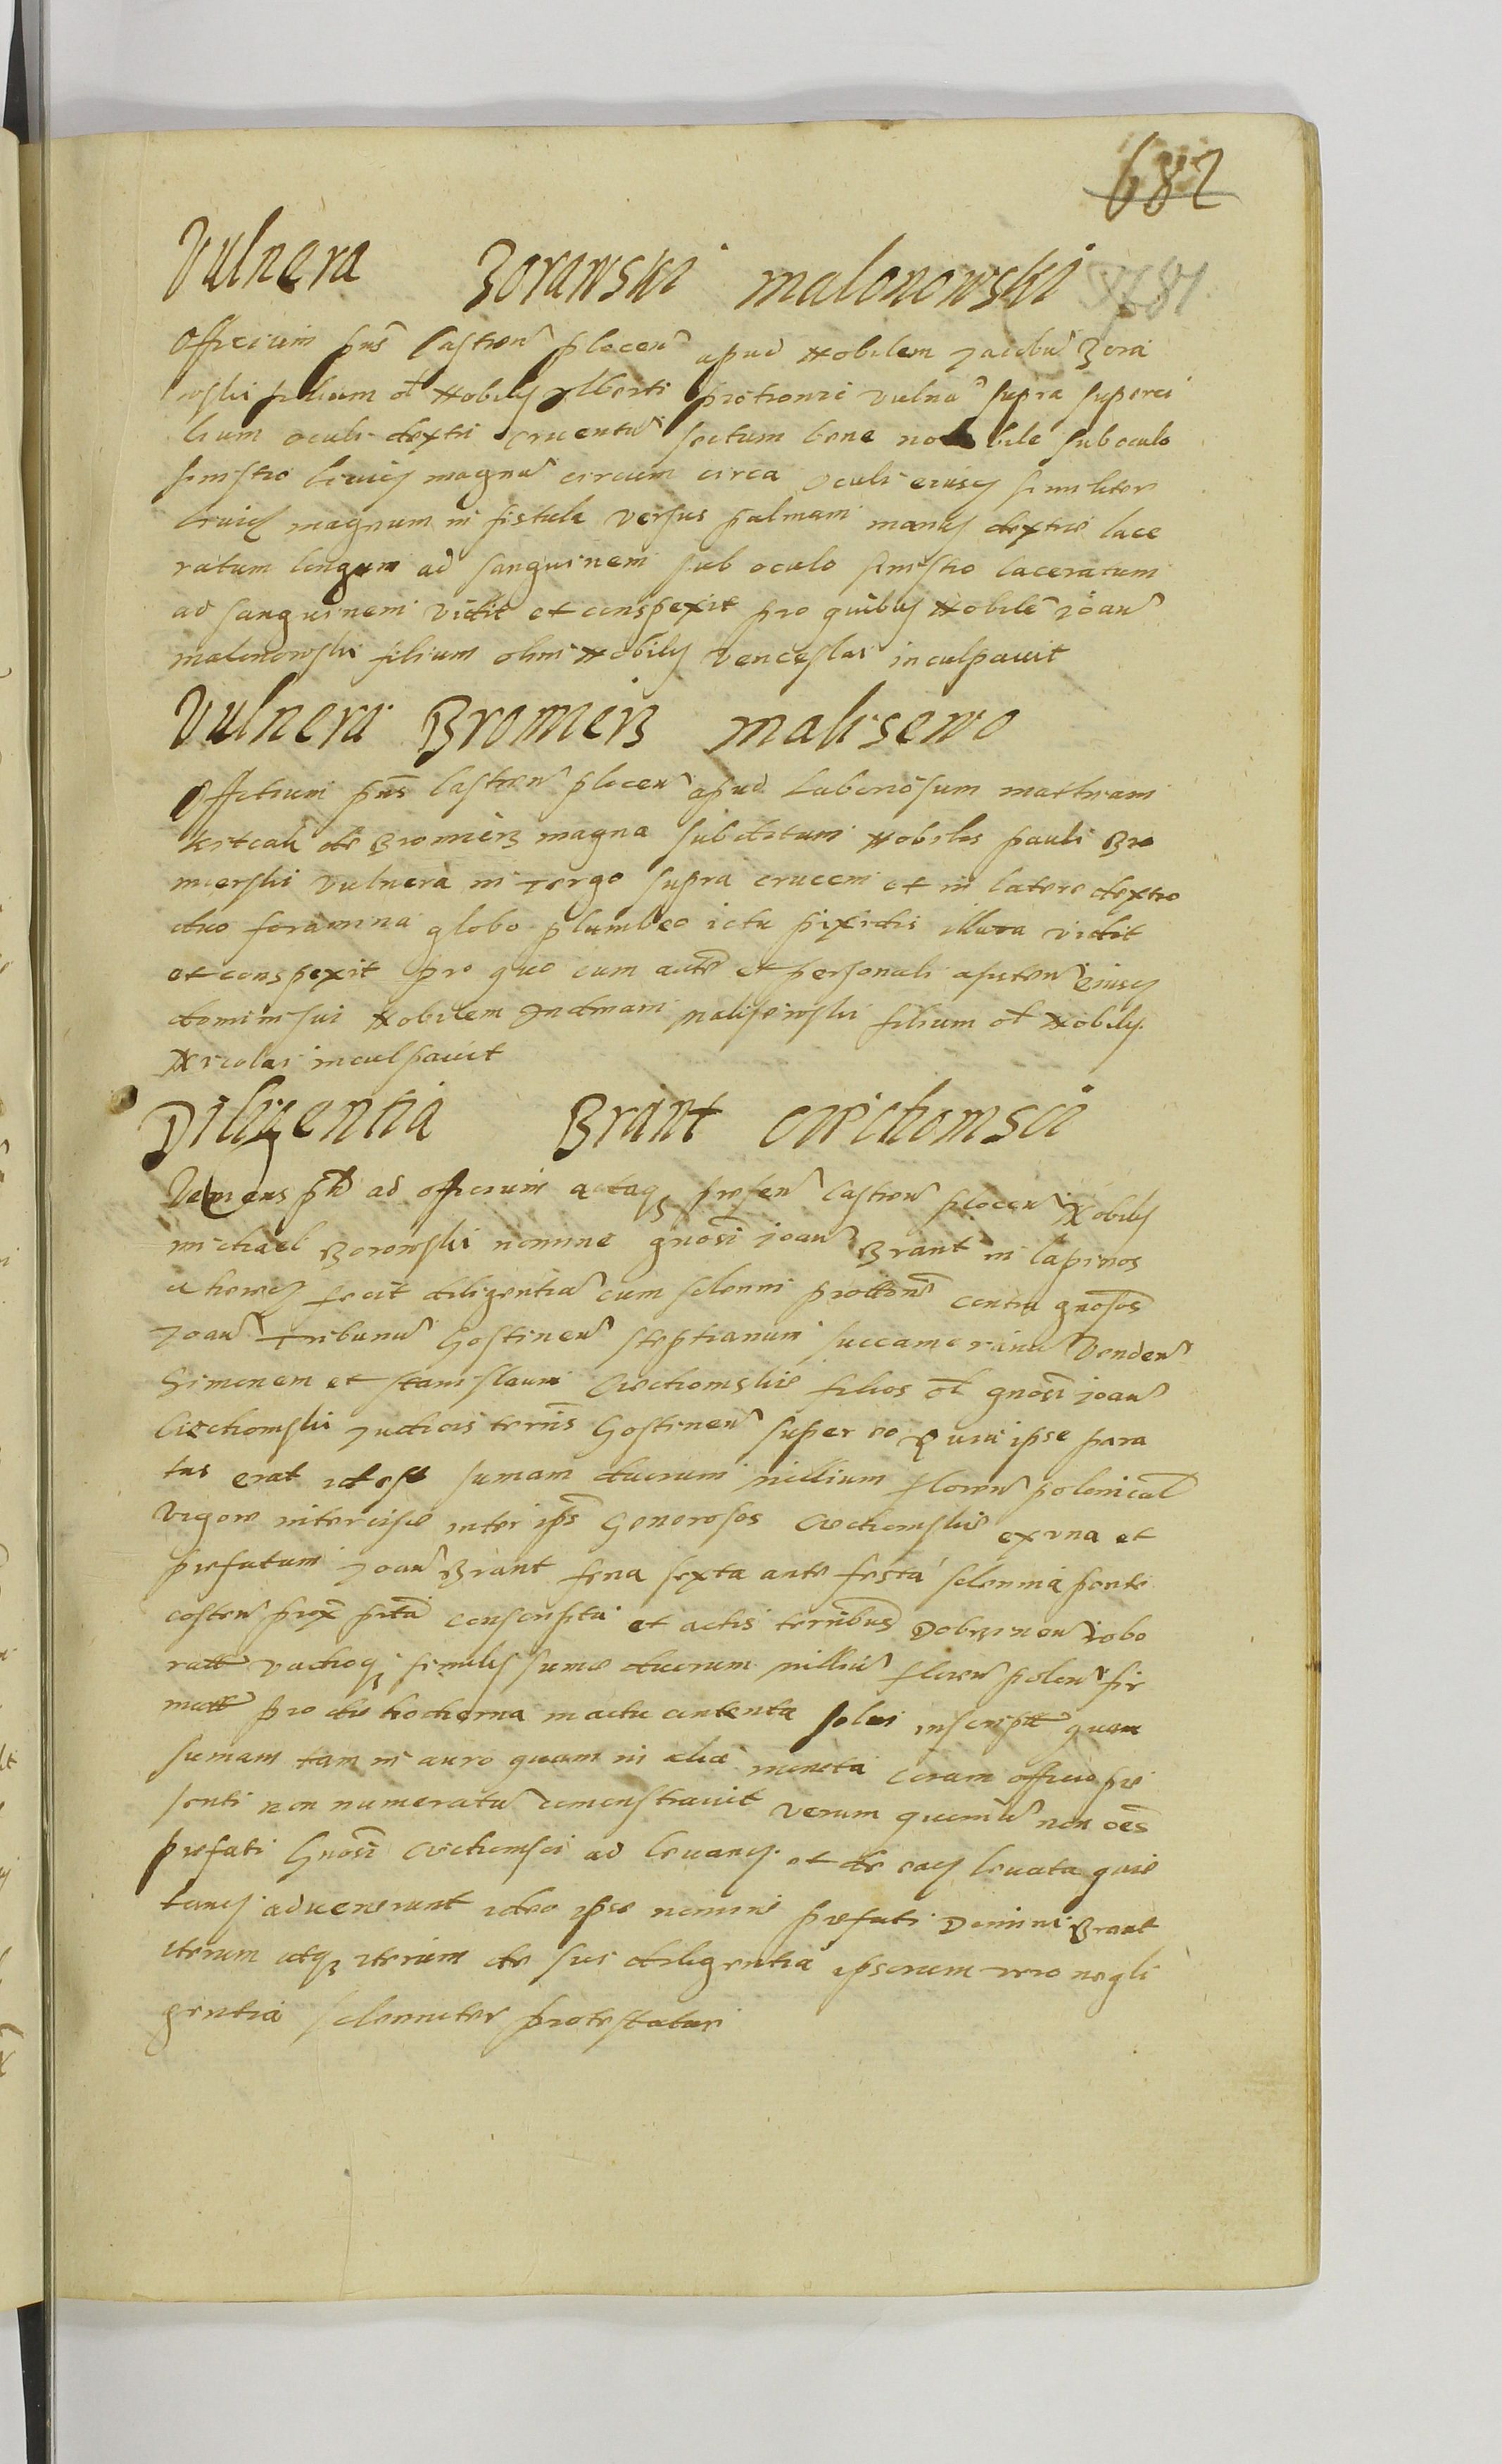 682
Vulnera Zorawski malonowski 
Officium pns Castren plocen apud Nobilem Jacobu Zora
wski filium ol Nobilis Alberti vulna supra superci
lium oculi dextri cruentu sectum bene notabile sub oculo
sinistro livid magnu circum circa oculi eiusq similiter
livid magnum in fistula versus palmam manus dextre lace
ratum longum ad sanguinem sub oculo sinistro laceratum
ad sanguinem vidit et conspexit pro quibus Nobile Joan
malonowski filium olim Nobilis Venceslai inculpavit
Vulnera Bromierz malisewo
Officium pns Castren plocen apud Laboriosum mathiam
de Bromierz magna subditum Nobilis pauli Bro
mierski vulnera in tergo supra crucem et in latere dextro
duo foramina globo plumbeo ictu pixidis illata vidit
et conspexit pro quo cum aucte et personali eiusq
domini sui Nobilem Andream malisewski filium ol Nobilis
Nicolai inculpavit
Diligentia Brant Ciechomsci
Veniens ad officium actaq presen Castren plocen Nobilis
michael Borowski nomine gnosi Joan Brant in lapinos
fecit diligentia cum solenni prottone contra gnosos
Joan Tribunu Gostinen stephanum succamerinu Venden
Simonem et stanislaum Ciechomskie filios ol gnosi Joan
Ciechomski Judicis terris Gostinen super eo Quia ipse para
tus erat summam duorum millium floren polonical
vigore intercise inter ips Generosos Ciechomskie ex una et
prefatum Joan Brant feria sexta ante festa solennia pente
costen prox conscripta et actis terribus Dobrzinen robo
ratt vadioq similis sume duorum milliu floren polon fir
matt pro die hodierna in actu contenta solui inscriptt quam
sumam tam in auro quam in alia moneta coram officio pre
senti non numeratu demonstravit verum quoniu non oes
prefati Gnosi Ciechomsci ad levand et de eaq levata quie
tand advenerunt ideo ipse nomine prefati Domini Brant
iterum atq iterum de sui diligentia ipsorum vero negli
gentia solenniter protestatur